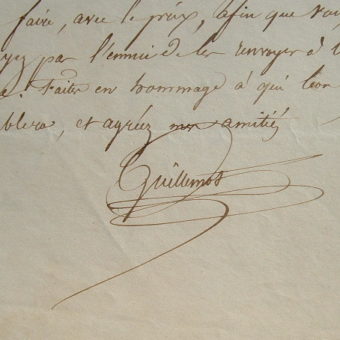 faire, avec le prix, afin que vou
yez pas l'ennui de les renvoyer à l
Faites en hommage à qui bon
blera, et agréez mes amitiés
Guillemot